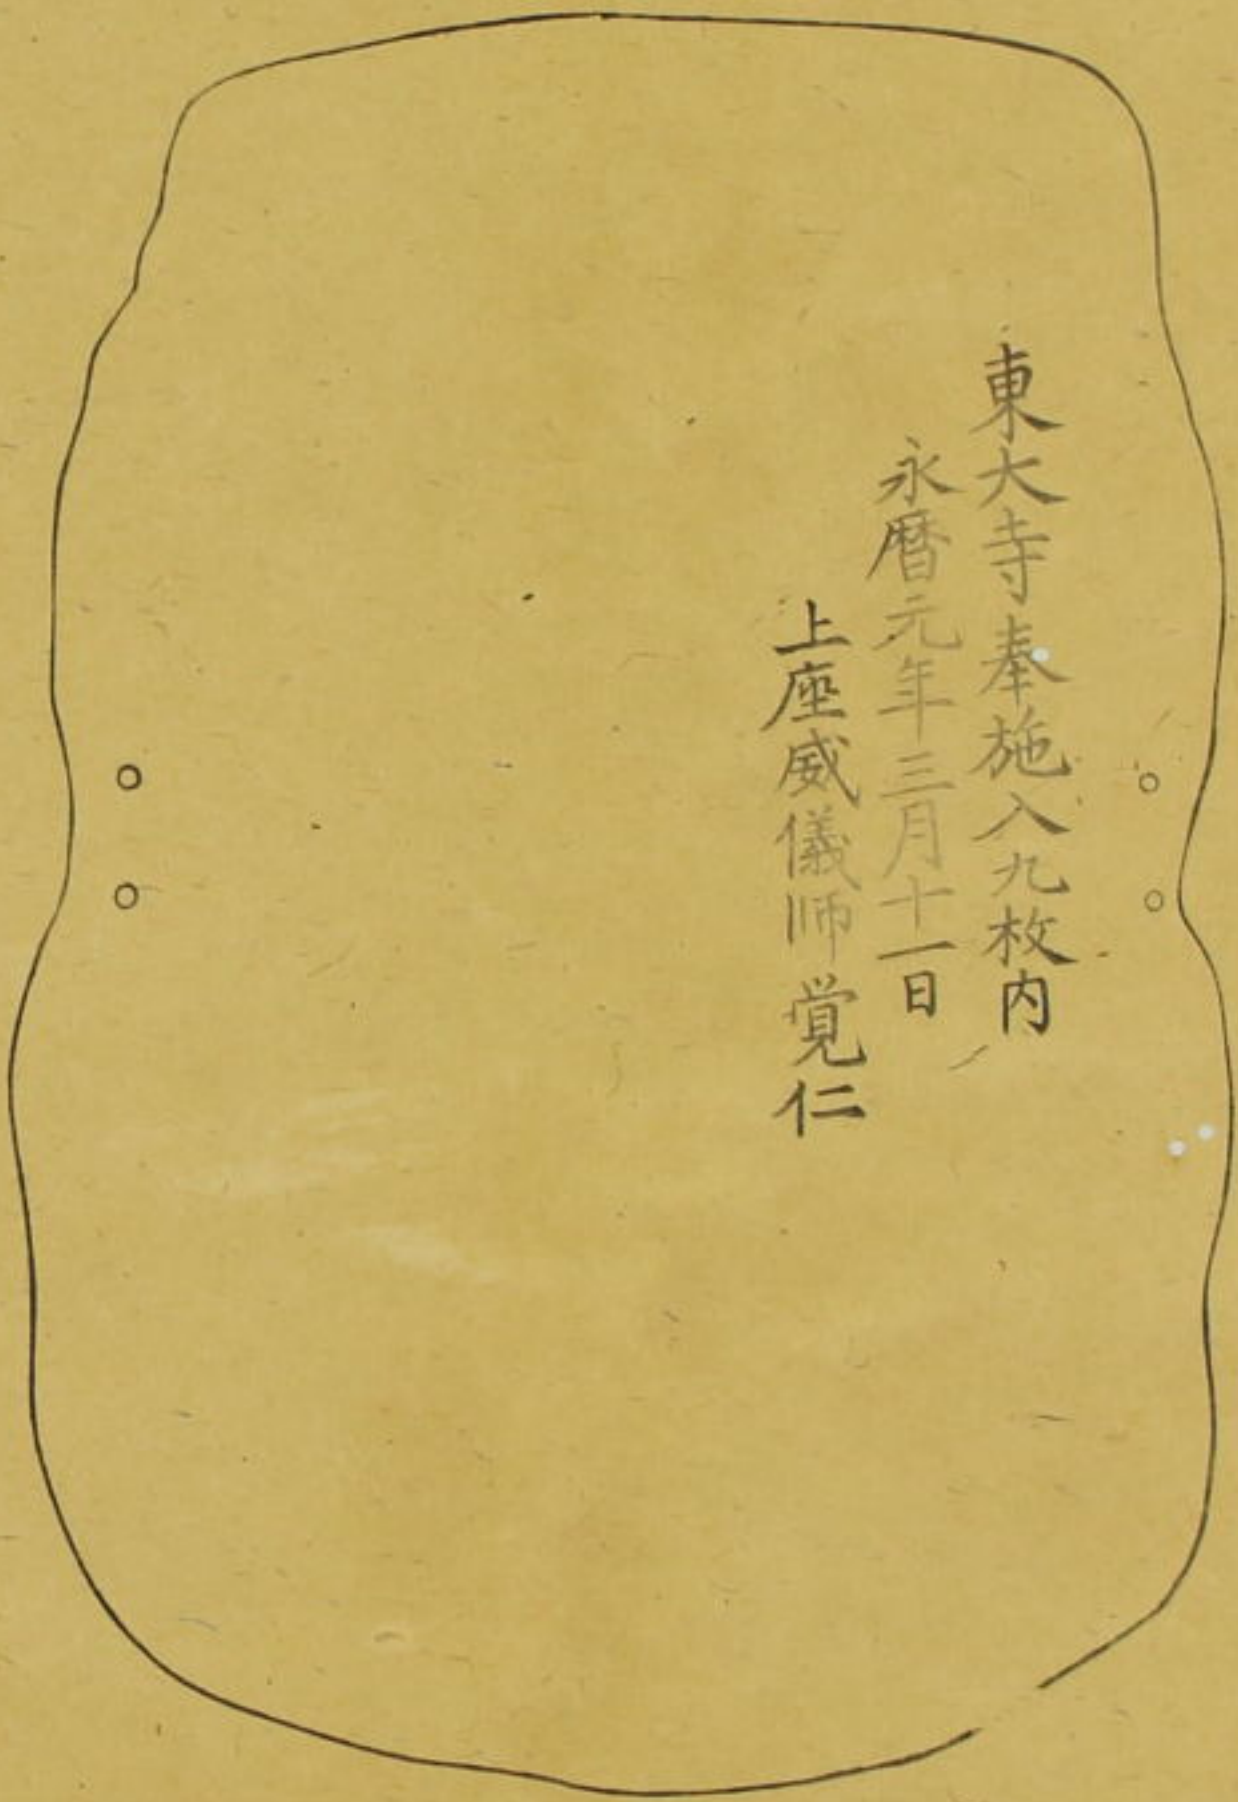 東大寺奉施入九枚内
永暦元年三月十一日
上座威儀師覚仁